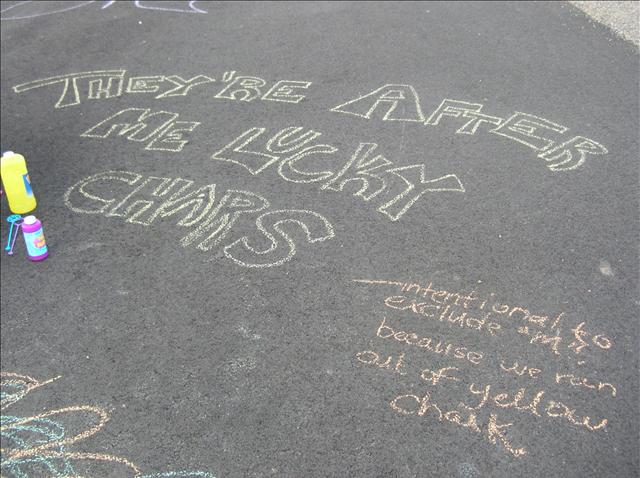 THEY'RE AFTER
ME LUCKY
CHARS
intentional to
exclude "m"
because we ran
out of yellow
chalk.